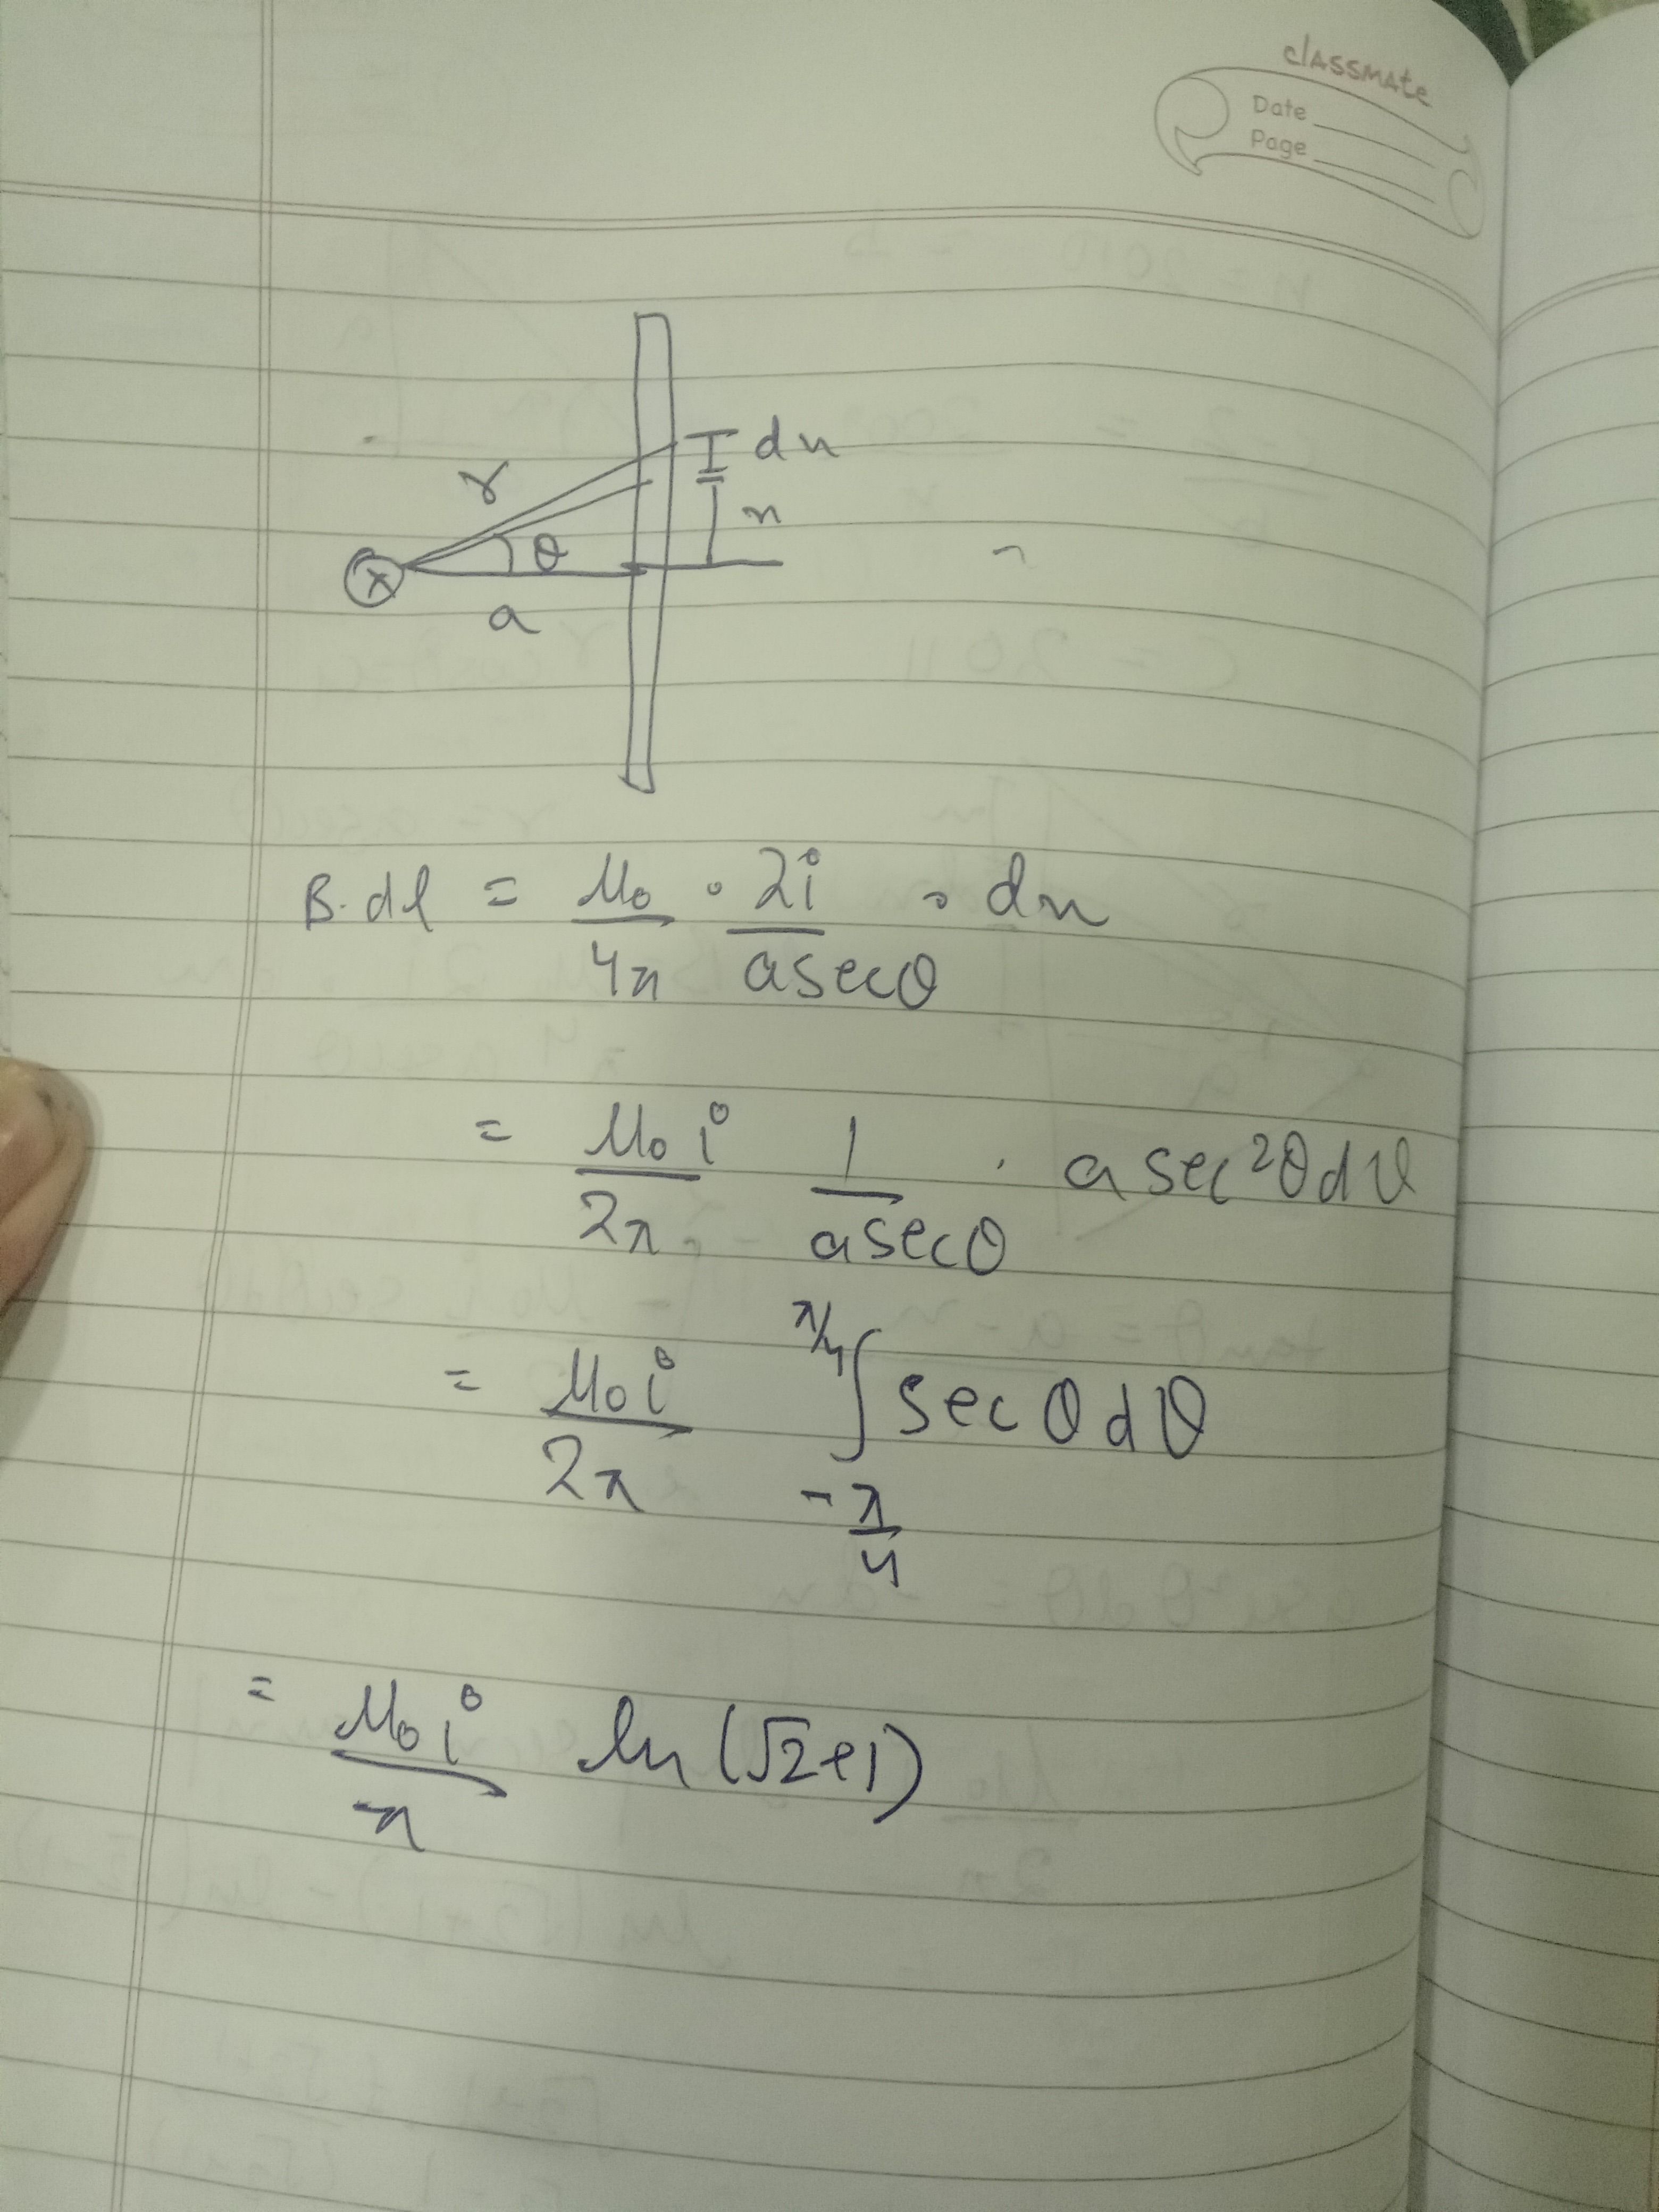 classmate
Date
Page
dx
r
x
θ
x
a
B.dl = μ₀/4π · 2i/(a secθ) · dx
= μ₀i/2π 1/(a secθ) · a sec²θdθ
= μ₀i/2π ∫_{-π/4}^{π/4} sec θ dθ
= μ₀i/π ln(√2+1)